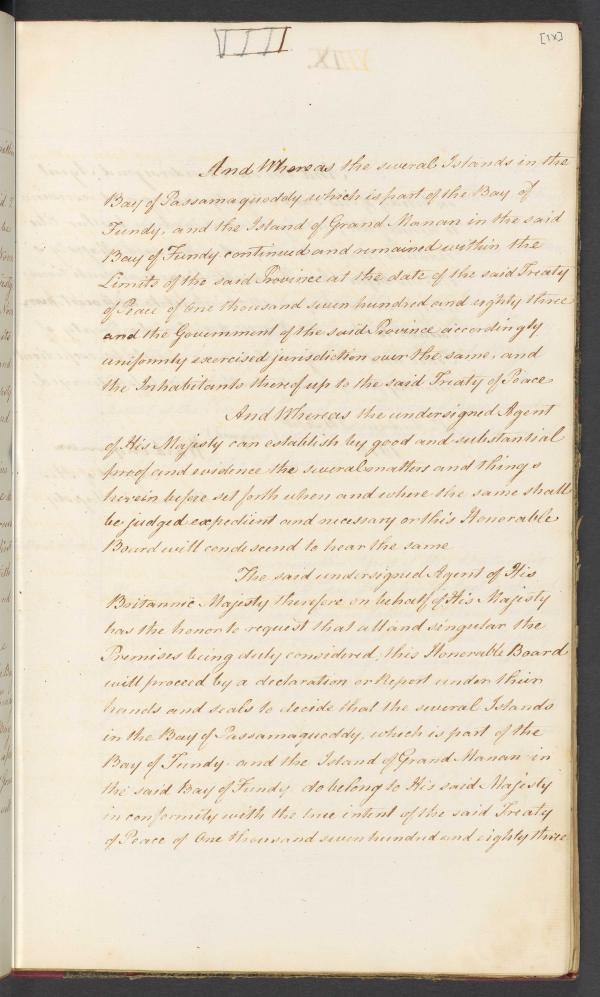 VIII
[IX]
And Whereas the several Islands in the
Bay of Passamaquoddy which is part of the Bay of
Fundy, and the Island of Grand Manan in the said
Bay of Fundy continued and remained within the
Limits of the said Province at the date of the said Treaty
of Peace of One thousand seven hundred and eighty three
and the Government of the said Province accordingly
uniformly exercised jurisdiction over the same, and
the Inhabitants thereof up to the said Treaty of Peace
And Whereas the undersigned Agent
of His Majesty can establish by good and substantial
proof and evidence the several matters and things
herein before set forth when and where the same shall
be judged expedient and necessary or this Honorable
Board will condescend to hear the same
The said undersigned Agent of His
Britannic Majesty therefore on behalf of His Majesty
has the honor to request that all and singular the
Premises being duly considered, this Honorable Board
will proceed by a declaration or Report under their
hands and seals to decide that the several Islands
in the Bay of Passamaquoddy, which is part of the
Bay of Fundy and the Island of Grand Manan in
the said Bay of Fundy, do belong to His said Majesty
in conformity with the true intent of the said Treaty
of Peace of One thousand seven hundred and eighty three